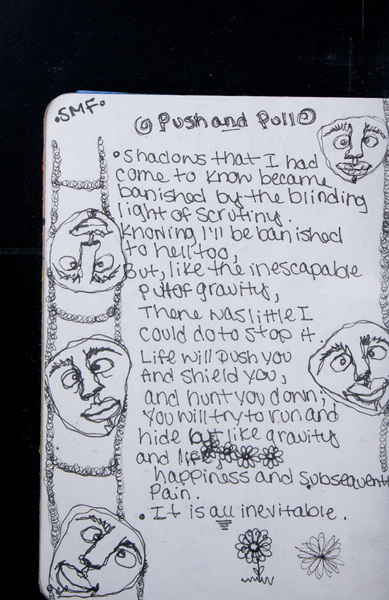 •SMF•
Push and Pull
• Shadows that I had
come to know became
banished by the blinding
light of scrutiny.
Knowing I'll be banished
to hell too,
But, like the inescapable
pull of gravity,
There was little I
could do to stop it.
Life will push you
And shield you,
and hunt you down;
You will try to run and
hide but like gravity
and life,
happiness and subsequent
Pain.
• It is all inevitable.